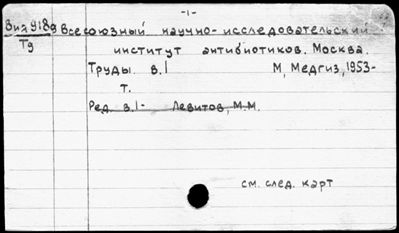 -1-
Всесоюзный научно-исследовательский
Тд
институт антибиотиков. Москва.
Труды. в.1 М, Медгиз, 1953-
т.
Ред. в.1- Левитов, М.М.
см. след. карт